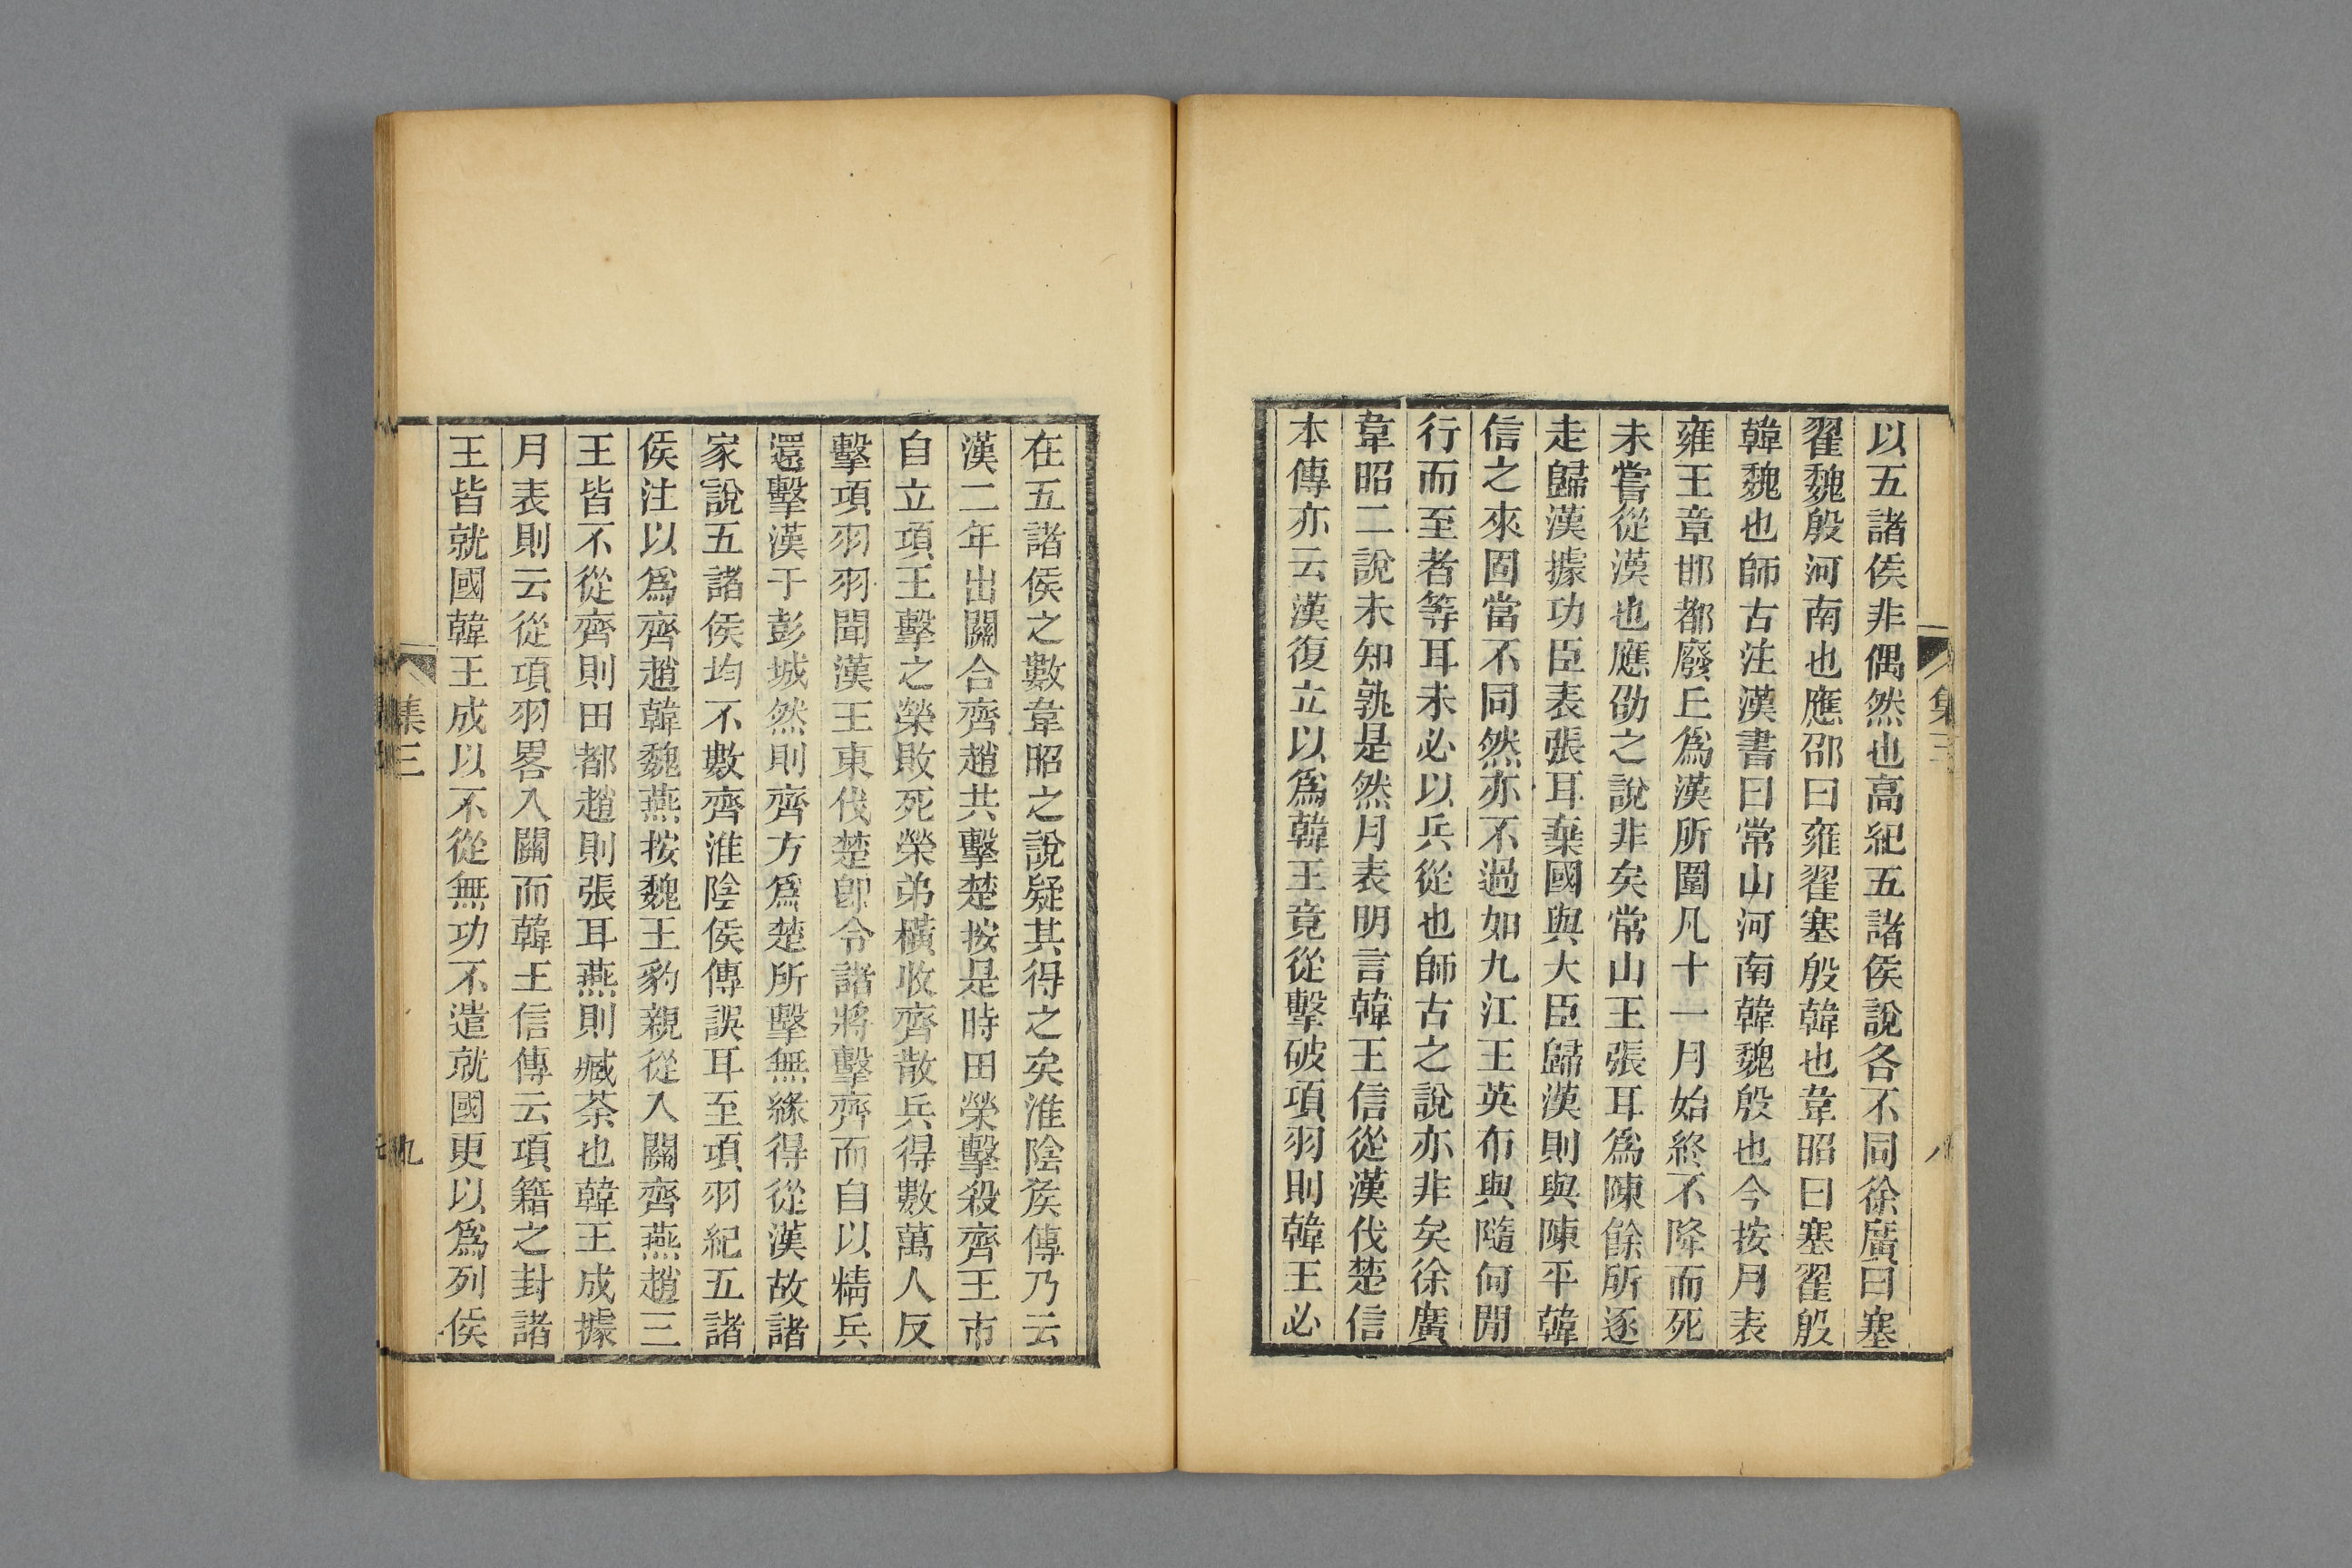 以五諸侯非偶然也高紀五諸侯說各不同徐廣曰塞
翟魏殷河南也應邵曰雍翟塞殷韓也韋昭曰塞翟殷
韓魏也師古注漢書曰常山河南韓魏殷也今按月表
雍王章邯都廢丘爲漢所圍凡十一月始終不降而死
未嘗從漢也應劭之說非矣常山王張耳爲陳餘所逐
走歸漢據功臣表張耳棄國與大臣歸漢則與陳平韓
信之來固當不同然亦不過如九江王英布與隨何閒
行而至者等耳未必以兵從也師古之說亦非矣徐廣
韋昭二說未知孰是然月表明言韓王信從漢伐楚信
本傳亦云漢復立以爲韓王竟從擊破項羽則韓王必
集三
八
在五諸侯之數韋昭之說疑其得之矣淮陰侯傳乃云
漢二年出關合齊趙共擊楚按是時田榮擊殺齊王市
自立項王擊之榮敗死榮弟橫收齊散兵得數萬人反
擊項羽羽聞漢王東伐楚卽令諸將擊齊而自以精兵
還擊漢于彭城然則齊方爲楚所擊無緣得從漢故諸
家說五諸侯均不數齊淮陰侯傳誤耳至項羽紀五諸
侯注以爲齊趙韓魏燕按魏王豹親從入關齊燕趙三
王皆不從齊則田都趙則張耳燕則臧荼也韓王成據
月表則云從項羽畧入關而韓王信傳云項籍之封諸
王皆就國韓王成以不從無功不遣就國更以爲列侯
集三
九